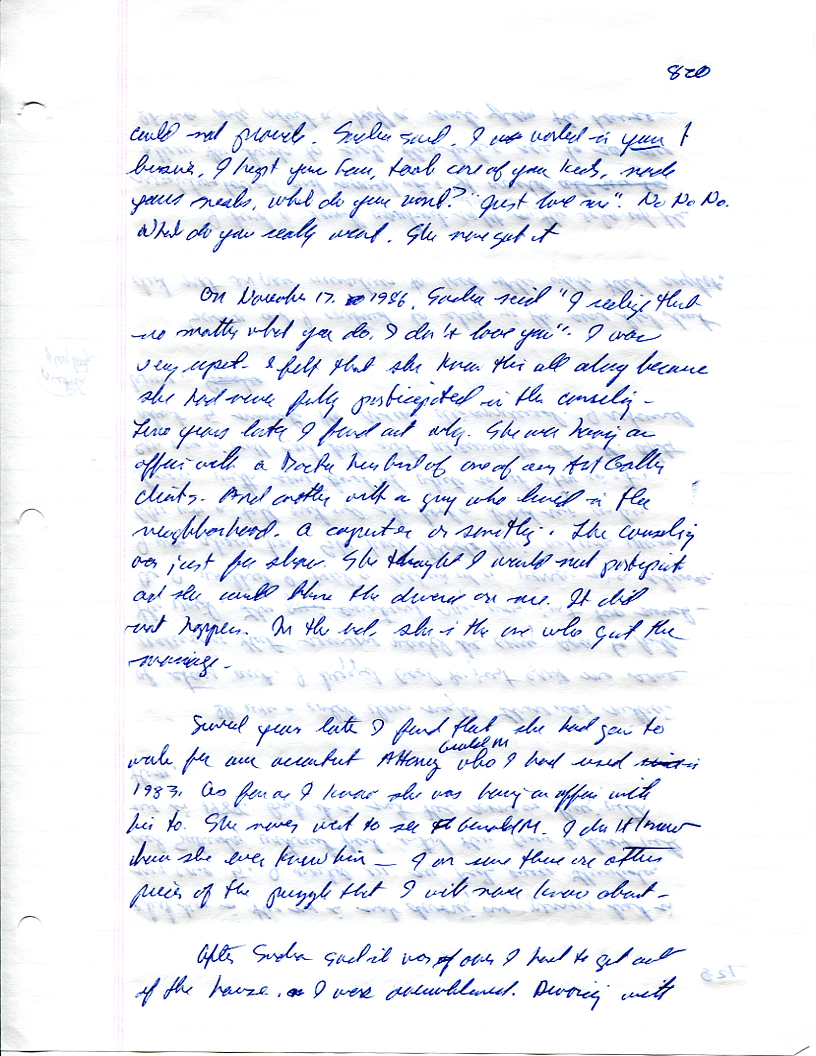 820
could not provide. Sandra said, I worked in your
business, I kept your home, took care of your kids, made
your meals, what do you want? "Just love me". No No No.
What do you really want. She never got it
On November 17, 1986, Sandra said "I realize that
no matter what you do, I don't love you". I was
very upset. I felt that she knew this all along because
she had never fully participated in the counseling -
Two years later I found out why. She was having an
affair with a Doctor husband of one of my Art Gallery
clients. And another with a guy who lived in the
neighborhood. A carpenter or something. The counseling
was just for show. She thought I would not participate
and she could blame the divorce on me. It did
not happen. In the end, she is the one who quit the
marriage.
Several years later I found that she had gone to
work for our accountant Attorney Gerald M who I had used in
1983. As far as I know she was having an affair with
him to. She never went to see Gerald M. I don't know
how she ever knew him — I am sure there are other
pieces of the puzzle that I will never know about -
After Sandra said it was over I had to get out
of the house. I was overwhelmed. Divorcing with